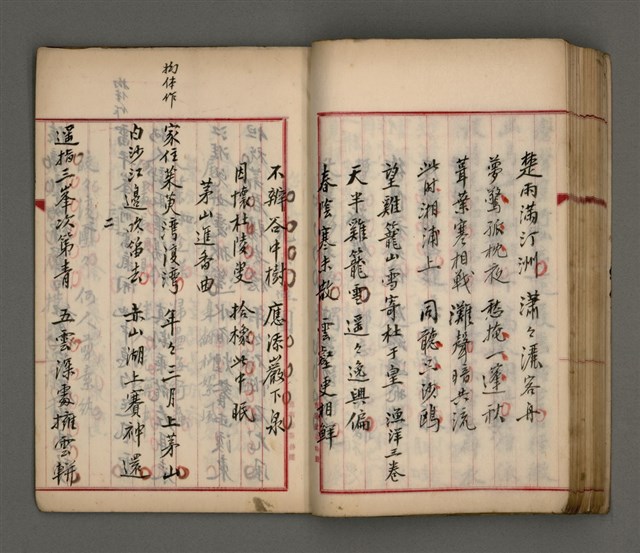 楚雨滿汀洲 瀟々灑客舟
夢驚孤枕夜 愁掩一蓬秋
葭葉寒相戰 灘聲暗共流
此时湘浦上 同聽亡沙鷗
望雞籠山雪寄杜于皇 漁洋三卷
天半雞籠雪 遥々逸興偏
春陰寒未散 雲壑更相鮮
不辨谷中樹 應添巖下泉
因懷杜陵叟 拾橡此中眠
茅山進香曲
家住茱萸灣復灣 年々三月上茅山
白沙江邊吹笛去 赤山湖上賽神還
二
遥指三峯次第青 五雲深處擁雲軿
拗体作